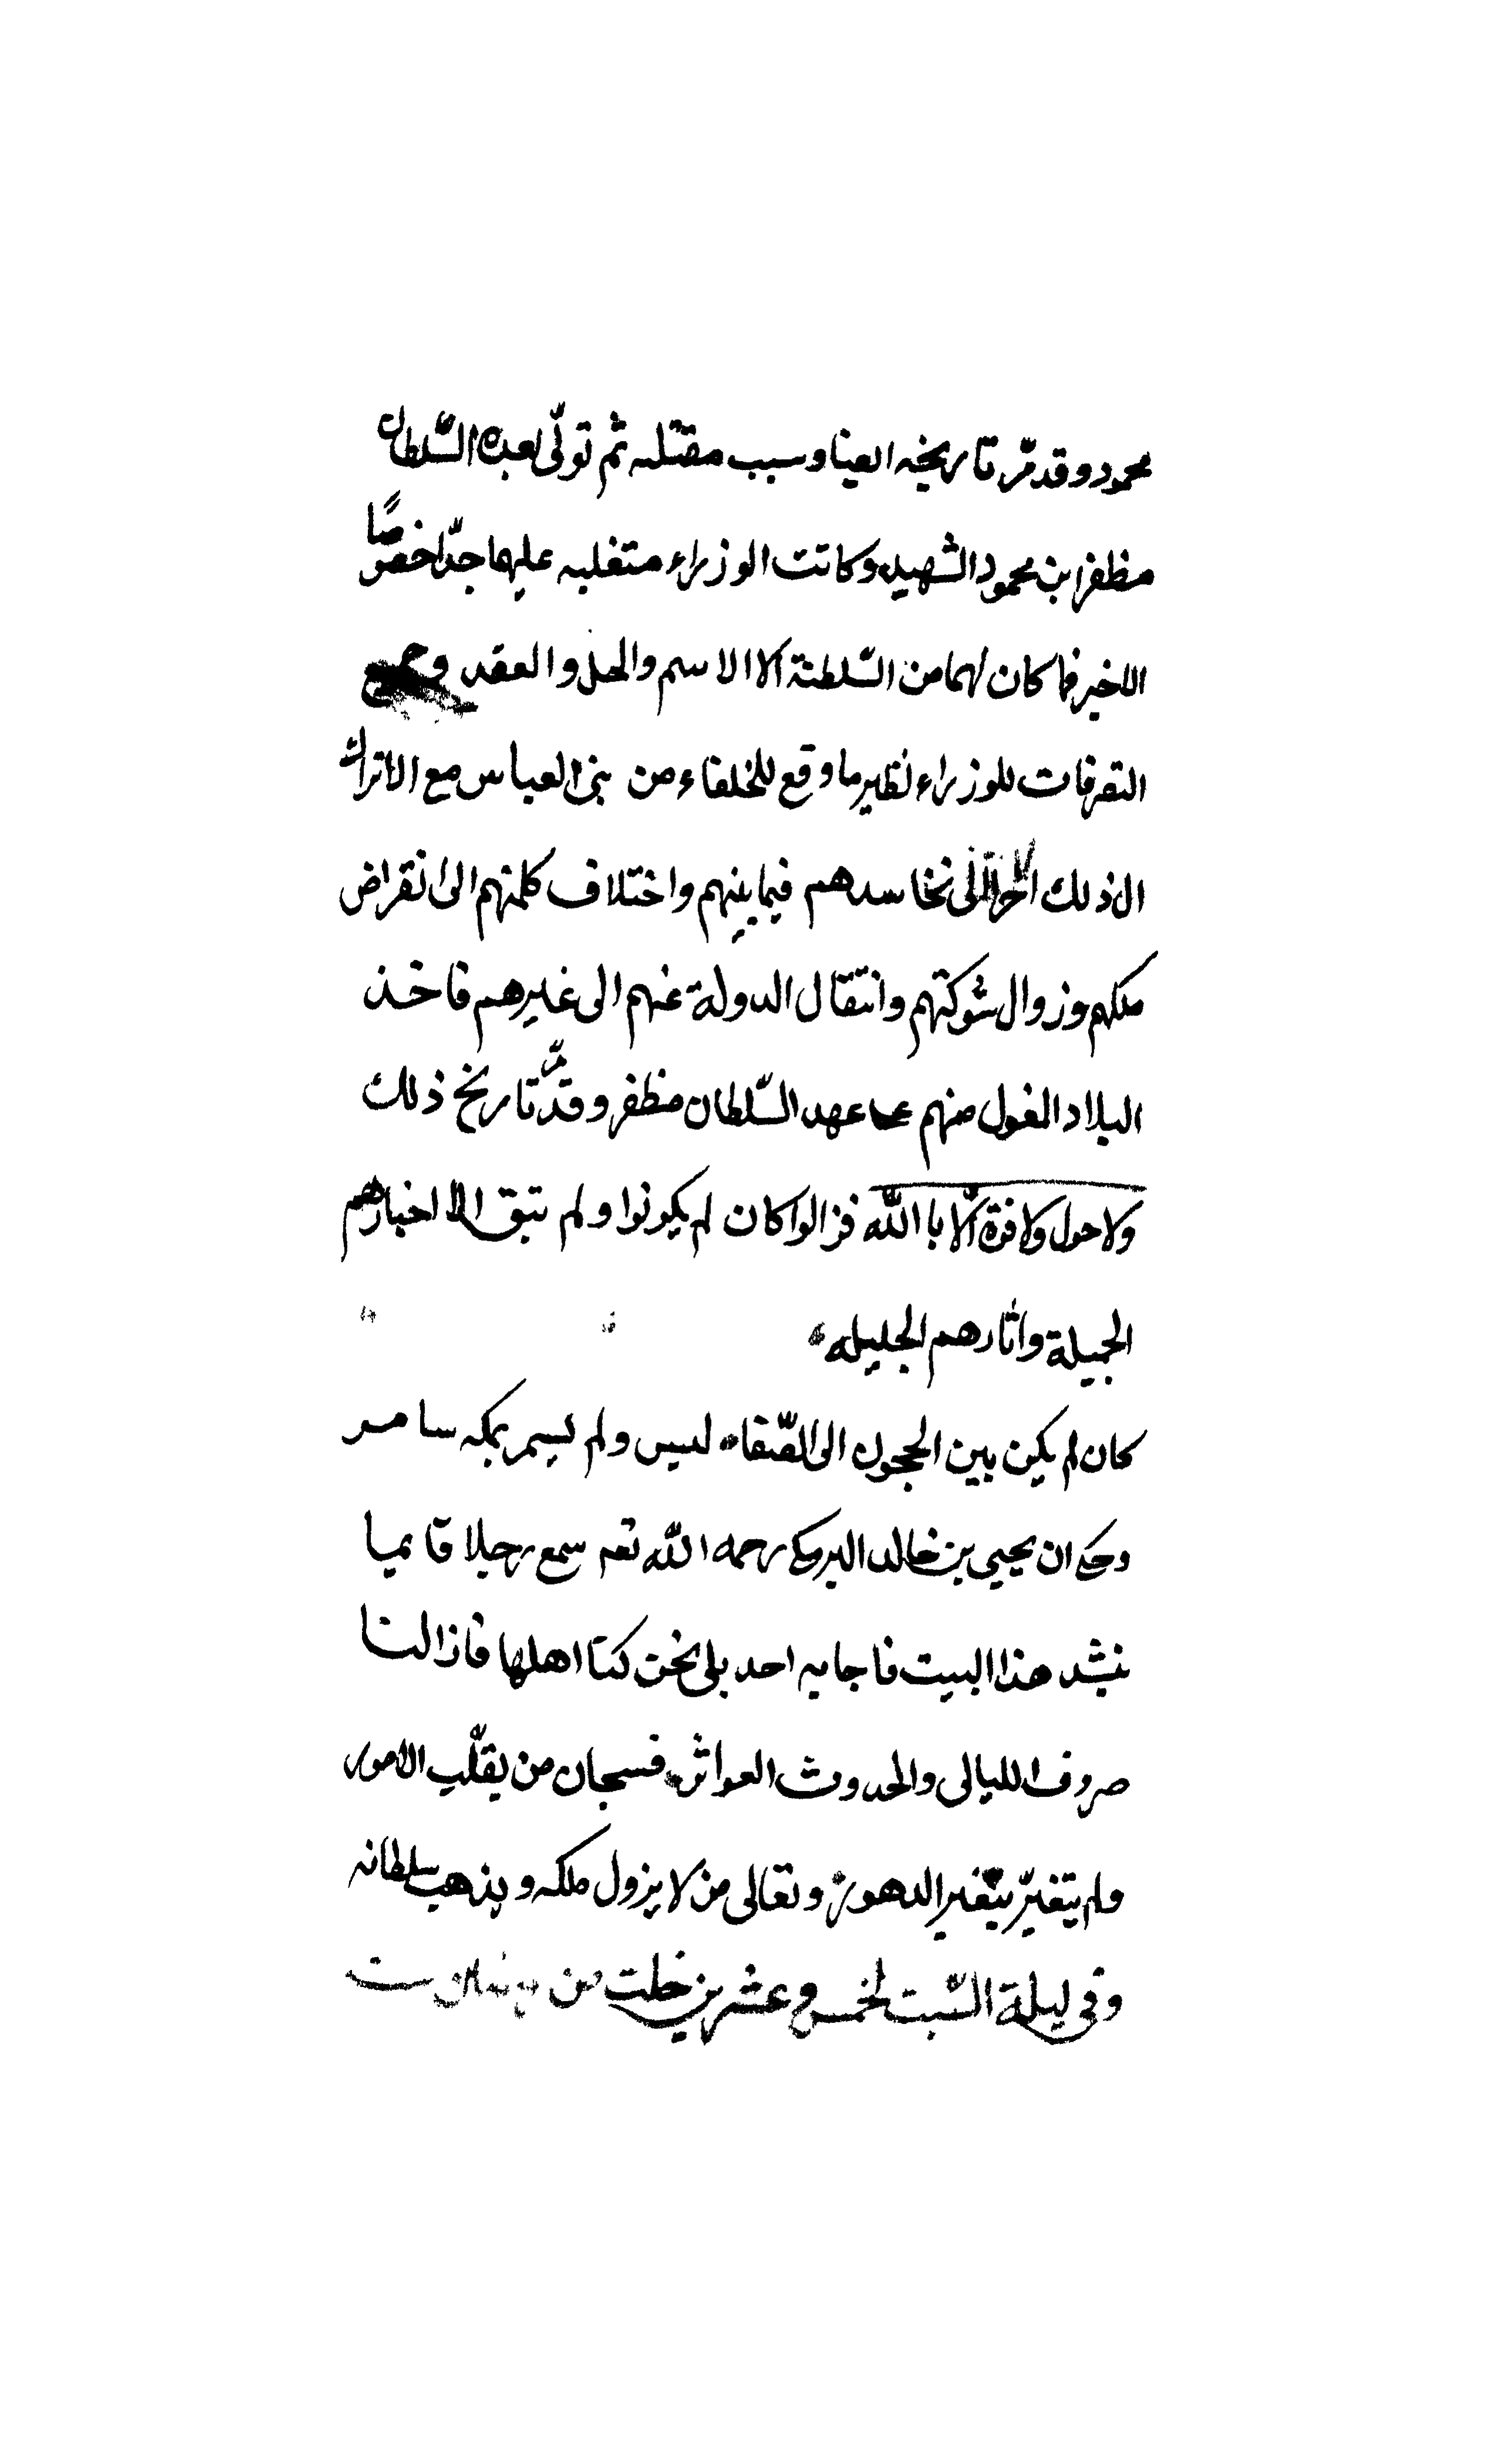 محمود وقد مّر تاريخيه ايضا وسبب مقتله ثم تولّى بعده السّلطان
مظفر ابن محمود الشهيد وكانت الوزراء متغلبه عليهما جدّا خصوصًا
الاخير فما كان لهما من السّلطنة الا الاسم والحل والعقد وجميع
التصرفات للوزراء نظير ما وقع للخلفاء من بنى العباس مع الاتراك
الى ذلك تحاسدهم فيما بينهم واختلاف كلمتهم الى انقراض
ملكهم وزوال شوكتهم وانتقال الدولة عنهم الى غيرهم فاخذ
البلاد المغول منهم عهد السّلطان مظفر وقد مّر تاريخ ذلك
ولا حول ولا قوة الّا با اللّه فزالوا كان لم يكونوا ولم تبق الا اخبارهم
الجميلة واثارهم الجليله
كان لم يكن بين الحجون الى الصّفا انيس ولم يسمر بمكه سامر
وحكى ان يحيى بن خالد البرمكى رحمه اللّه تعه سمع رجلا قايما
ينشد هذا البيت فاجابه احد بلى نحن كنّا اهلها فازالنا
صروف الليالى والحدوث العواثر فسبحان من يقلّب الامور
ولم يتغيّر بتغير الدهور وتعالى من لا يزول ملكه ويذهب سلطانه
وفى ليلة السّبت لخمس وعشرين خلت من رمضان سنت